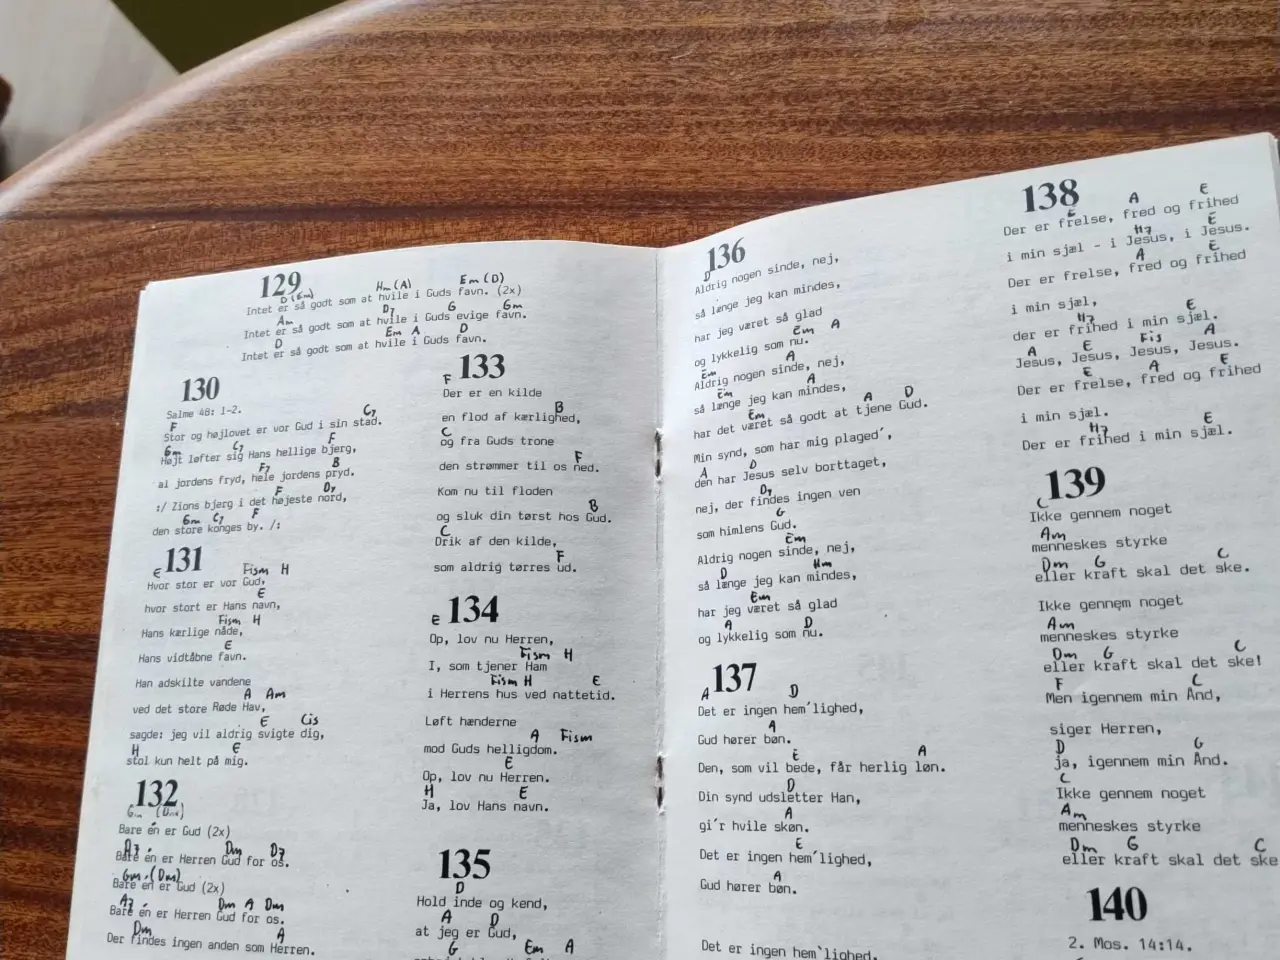 129
D (Gm) Hm (A) Em (D)
Intet er så godt som at hvile i Guds favn. (2x)
Am D7 G Gm
Intet er så godt som at hvile i Guds evige favn.
D Em A D
Intet er så godt som at hvile i Guds favn.
130
Salme 48: 1-2.
F C7
Stor og højlovet er vor Gud i sin stad.
Gm C7 F
Højt løfter sig Hans hellige bjerg,
F7 B
al jordens fryd, hele jordens pryd.
F D7
:/ Zions bjerg i det højeste nord,
Gm C7 F
den store konges by. /:
131
E Fism H
Hvor stor er vor Gud,
E
hvor stort er Hans navn,
Fism H
Hans kærlige nåde,
E
Hans vidtåbne favn.
Han adskilte vandene
A Am
ved det store Røde Hav,
E Cis
sagde: jeg vil aldrig svigte dig,
H E
stol kun helt på mig.
132
Gm (Dm)
Bare én er Gud (2x)
A7 Dm D7
Bare én er Herren Gud for os.
Gm (Dm)
Bare én er Gud (2x)
A7 Dm A Dm
Bare én er Herren Gud for os.
Dm A
Der findes ingen anden som Herren.
133
F
Der er en kilde
B
en flod af kærlighed,
C
og fra Guds trone
F
den strømmer til os ned.
Kom nu til floden
B
og sluk din tørst hos Gud.
C
Drik af den kilde,
F
som aldrig tørres ud.
134
E
Op, lov nu Herren,
Fism H
I, som tjener Ham
Fism H E
i Herrens hus ved nattetid.
Løft hænderne
A Fism
mod Guds helligdom.
E
Op, lov nu Herren.
H E
Ja, lov Hans navn.
135
D
Hold inde og kend,
A D
at jeg er Gud,
G Em A
136
D
Aldrig nogen sinde, nej,
så længe jeg kan mindes,
har jeg været så glad
Em A
og lykkelig som nu.
Em A
Aldrig nogen sinde, nej,
Em A
så længe jeg kan mindes,
Em A D
har det været så godt at tjene Gud.
Min synd, som har mig plaged´,
A D
den har Jesus selv borttaget,
D7
nej, der findes ingen ven
G
som himlens Gud.
Em
Aldrig nogen sinde, nej,
D Hm
så længe jeg kan mindes,
Em
har jeg været så glad
A D
og lykkelig som nu.
137
A D
Det er ingen hem´lighed,
A
Gud hører bøn.
E A
Den, som vil bede, får herlig løn.
D
Din synd udsletter Han,
A
gi´r hvile skøn.
E
Det er ingen hem´lighed,
A
Gud hører bøn.
Det er ingen hem`lighed,
138
E A E
Der er frelse, fred og frihed
H7 E
i min sjæl - i Jesus, i Jesus.
A E
Der er frelse, fred og frihed
i min sjæl,
H7 E
der er frihed i min sjæl.
A E Fis A
Jesus, Jesus, Jesus, Jesus.
E A E
Der er frelse, fred og frihed
i min sjæl.
H7 E
Der er frihed i min sjæl.
139
C
Ikke gennem noget
Am
menneskes styrke
Dm G C
eller kraft skal det ske.
Ikke gennem noget
Am
menneskes styrke
Dm G C
eller kraft skal det ske!
F C
Men igennem min Ånd,
siger Herren,
D G
ja, igennem min Ånd.
C
Ikke gennem noget
Am
menneskes styrke
Dm G C
eller kraft skal det ske
140
2. Mos. 14:14.